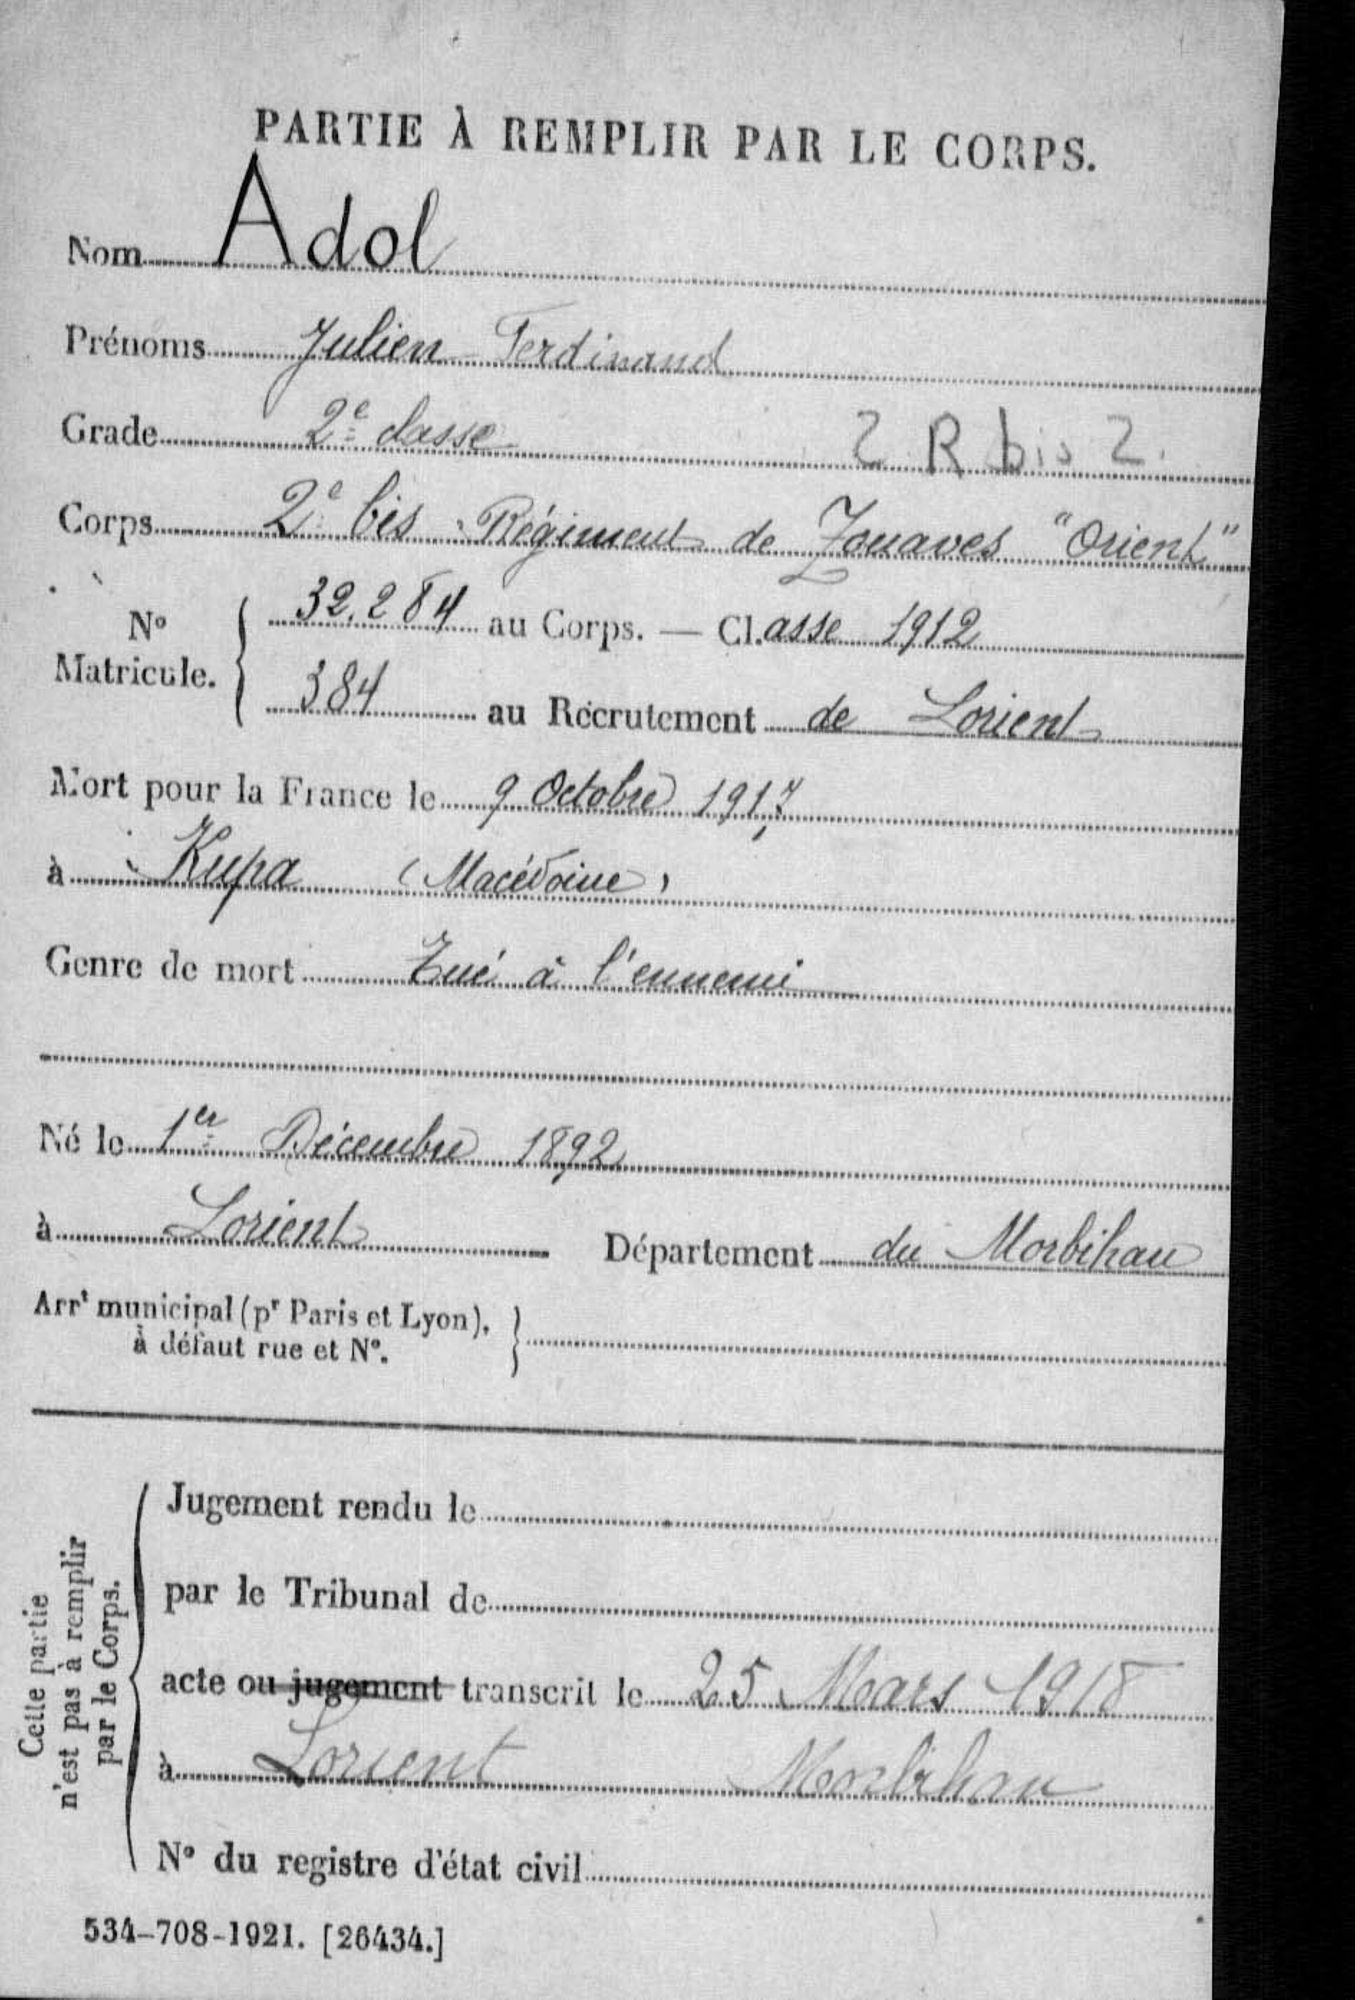 PARTIE À REMPLIR PAR LE CORPS.
Nom Adol
Prénoms Julien Ferdinand
Grade 2e classe 2 R bis Z.
Corps 2e bis Régiment de Zouaves "Orient"
No Matricule. { 32.284 au Corps. — Cl.asse 1912
384 au Recrutement de Lorient
Mort pour la France le 9 Octobre 1917
à Kupa (Macédoine)
Genre de mort Tué à l'ennemi
Né le 1er Décembre 1892
à Lorient Département du Morbihan
Arrt municipal (pr Paris et Lyon),
à défaut rue et No. }
Cette partie
n'est pas à remplir
par le Corps.
Jugement rendu le
par le Tribunal de
acte ou jugement transcrit le 25 Mars 1918
à Lorient Morbihan
No du registre d'état civil
534-708-1921. [26434.]